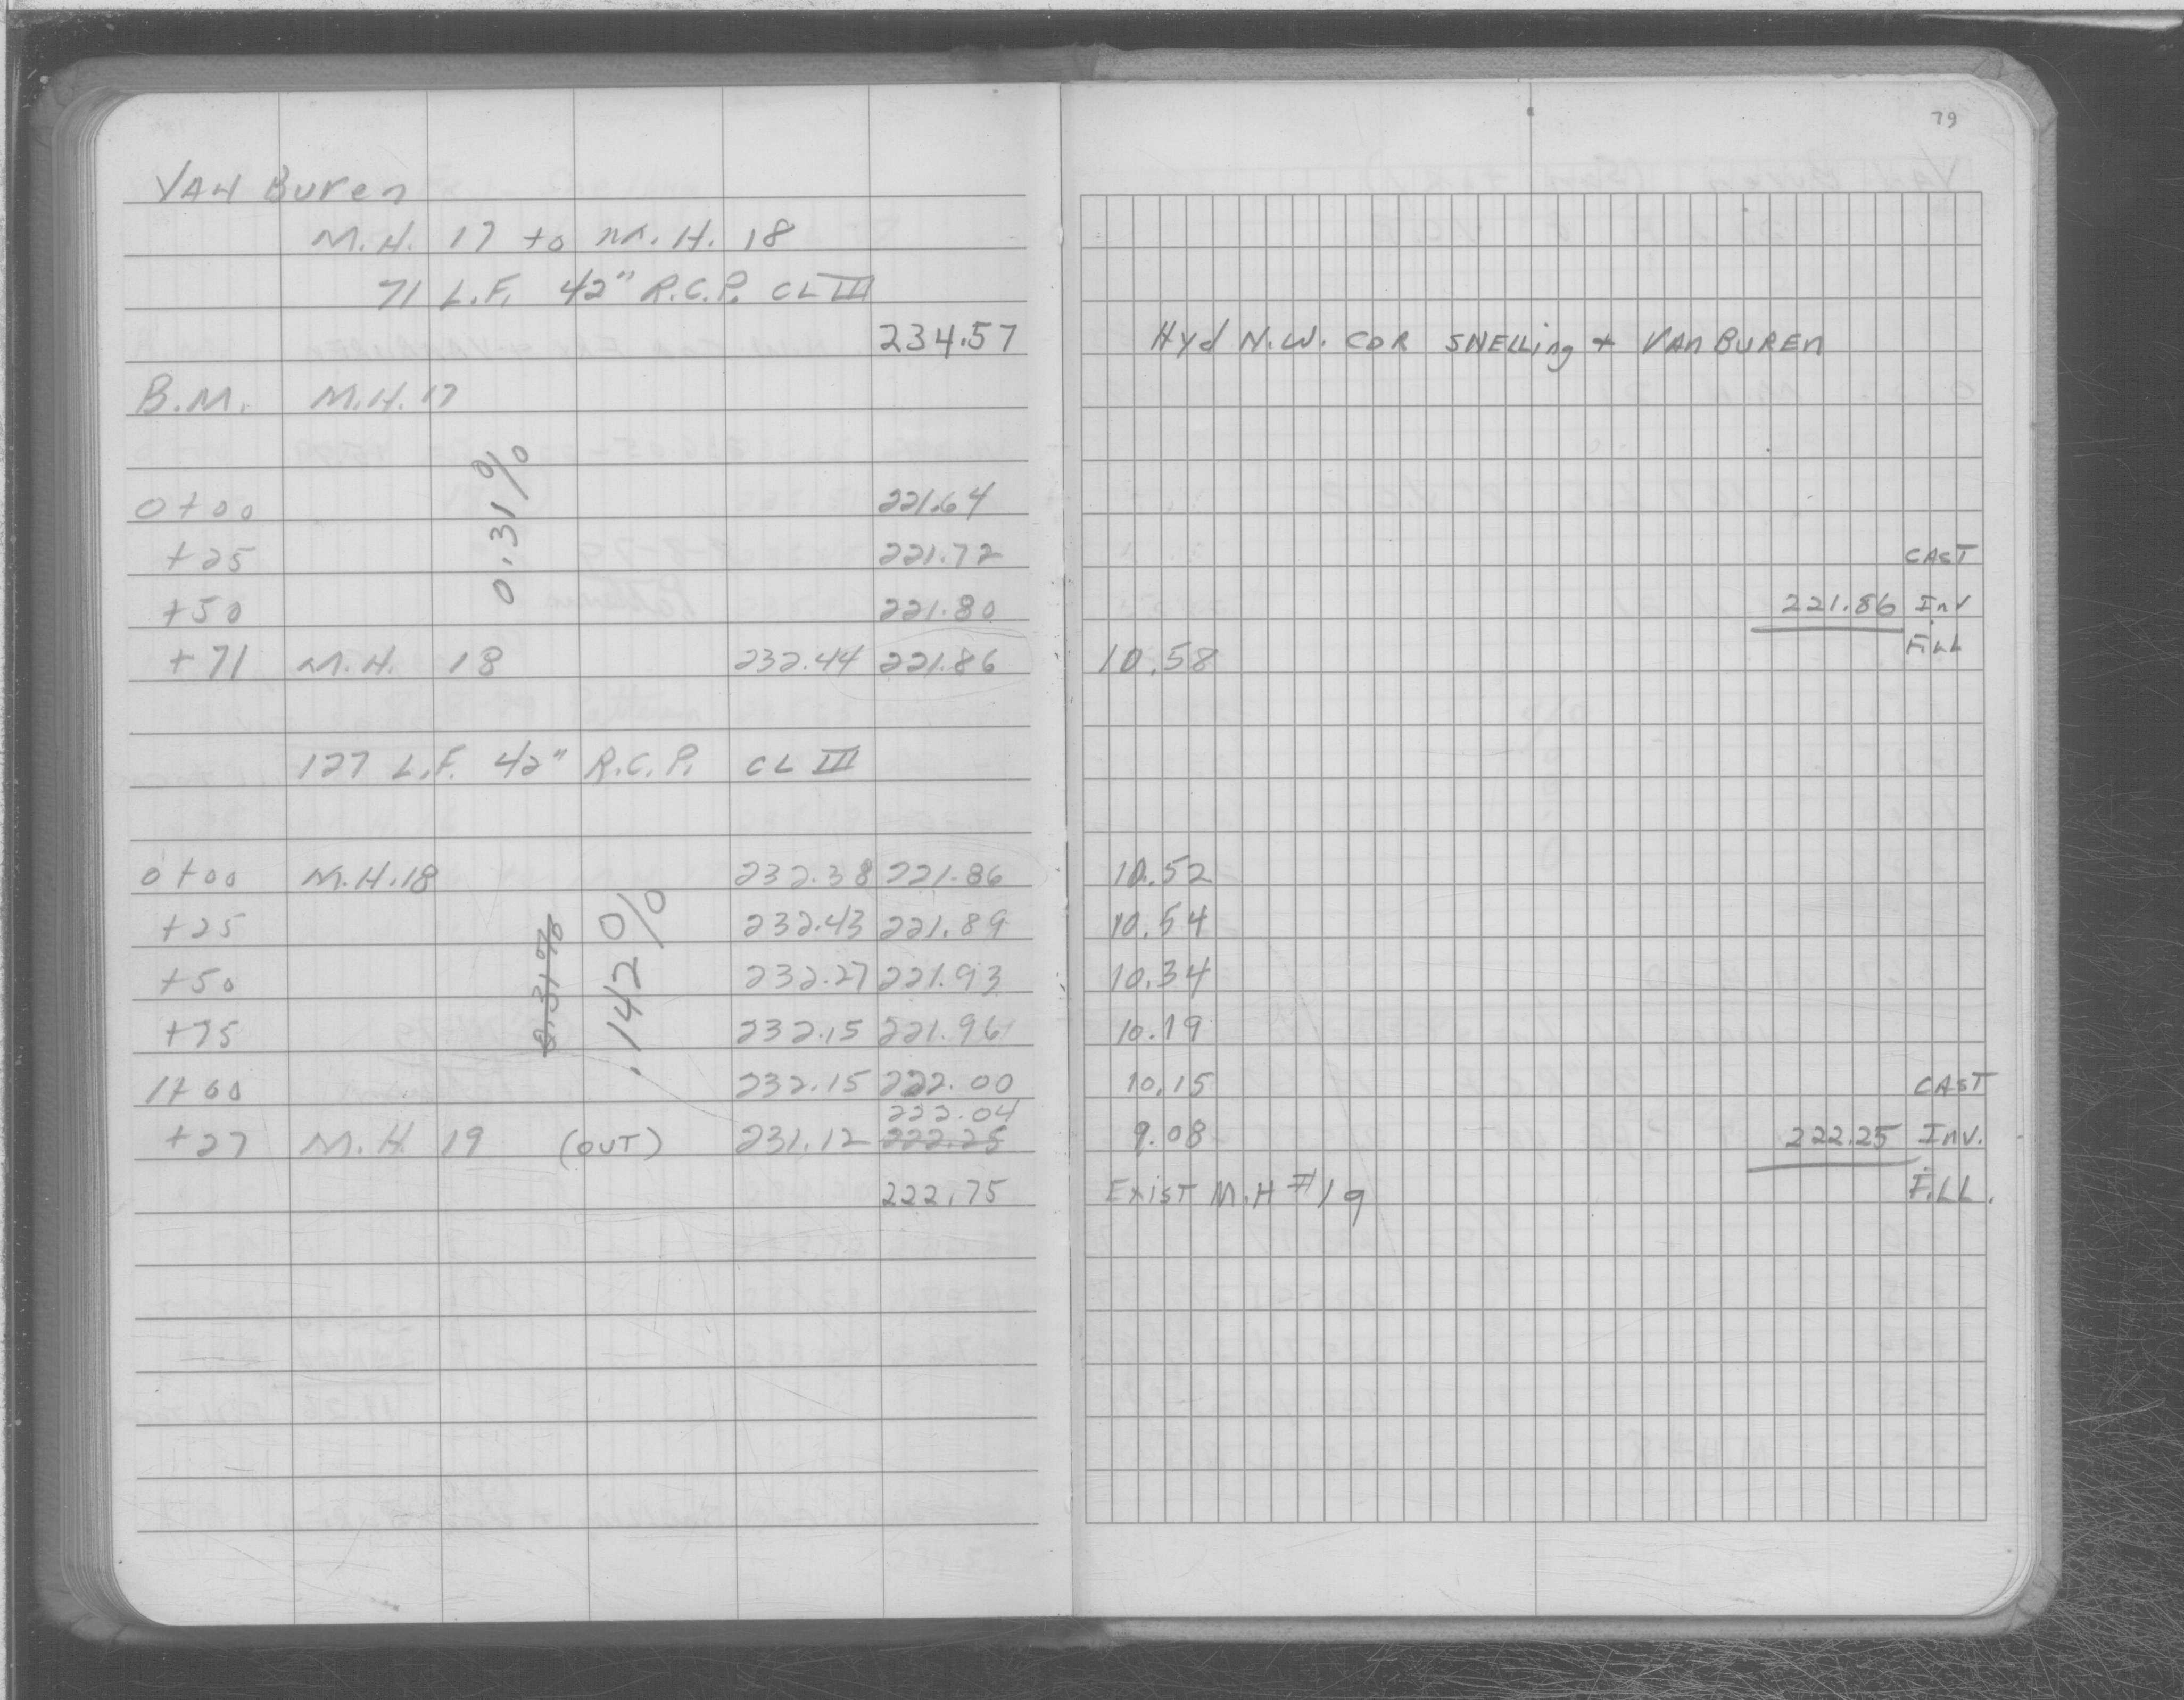 79
VAN Buren
M.H. 17 to M.H. 18
71 L.F. 42" R.C.P. CL III
234.57 Hyd N.W. COR SNELLing + VAN BUREN
B.M. M.H. 17
0+00 221.64
0.31%
+25 221.72 CAST
+50 221.80 221.86 Inv
+71 M.H. 18 232.44 221.86 10.58 FiLL
127 L.F. 42" R.C.P. CL III
0+00 M.H. 18 232.38 221.86 10.52
+25 232.43 221.89 10.54
0.31% .142%
+50 232.27 221.93 10.34
+75 232.15 221.96 10.19
1+00 232.15 222.00 10.15 CAST
222.04
+27 M.H. 19 (OUT) 231.12 222.25 9.08 222.25 Inv.
222.75 ExisT M.H #19 FiLL.